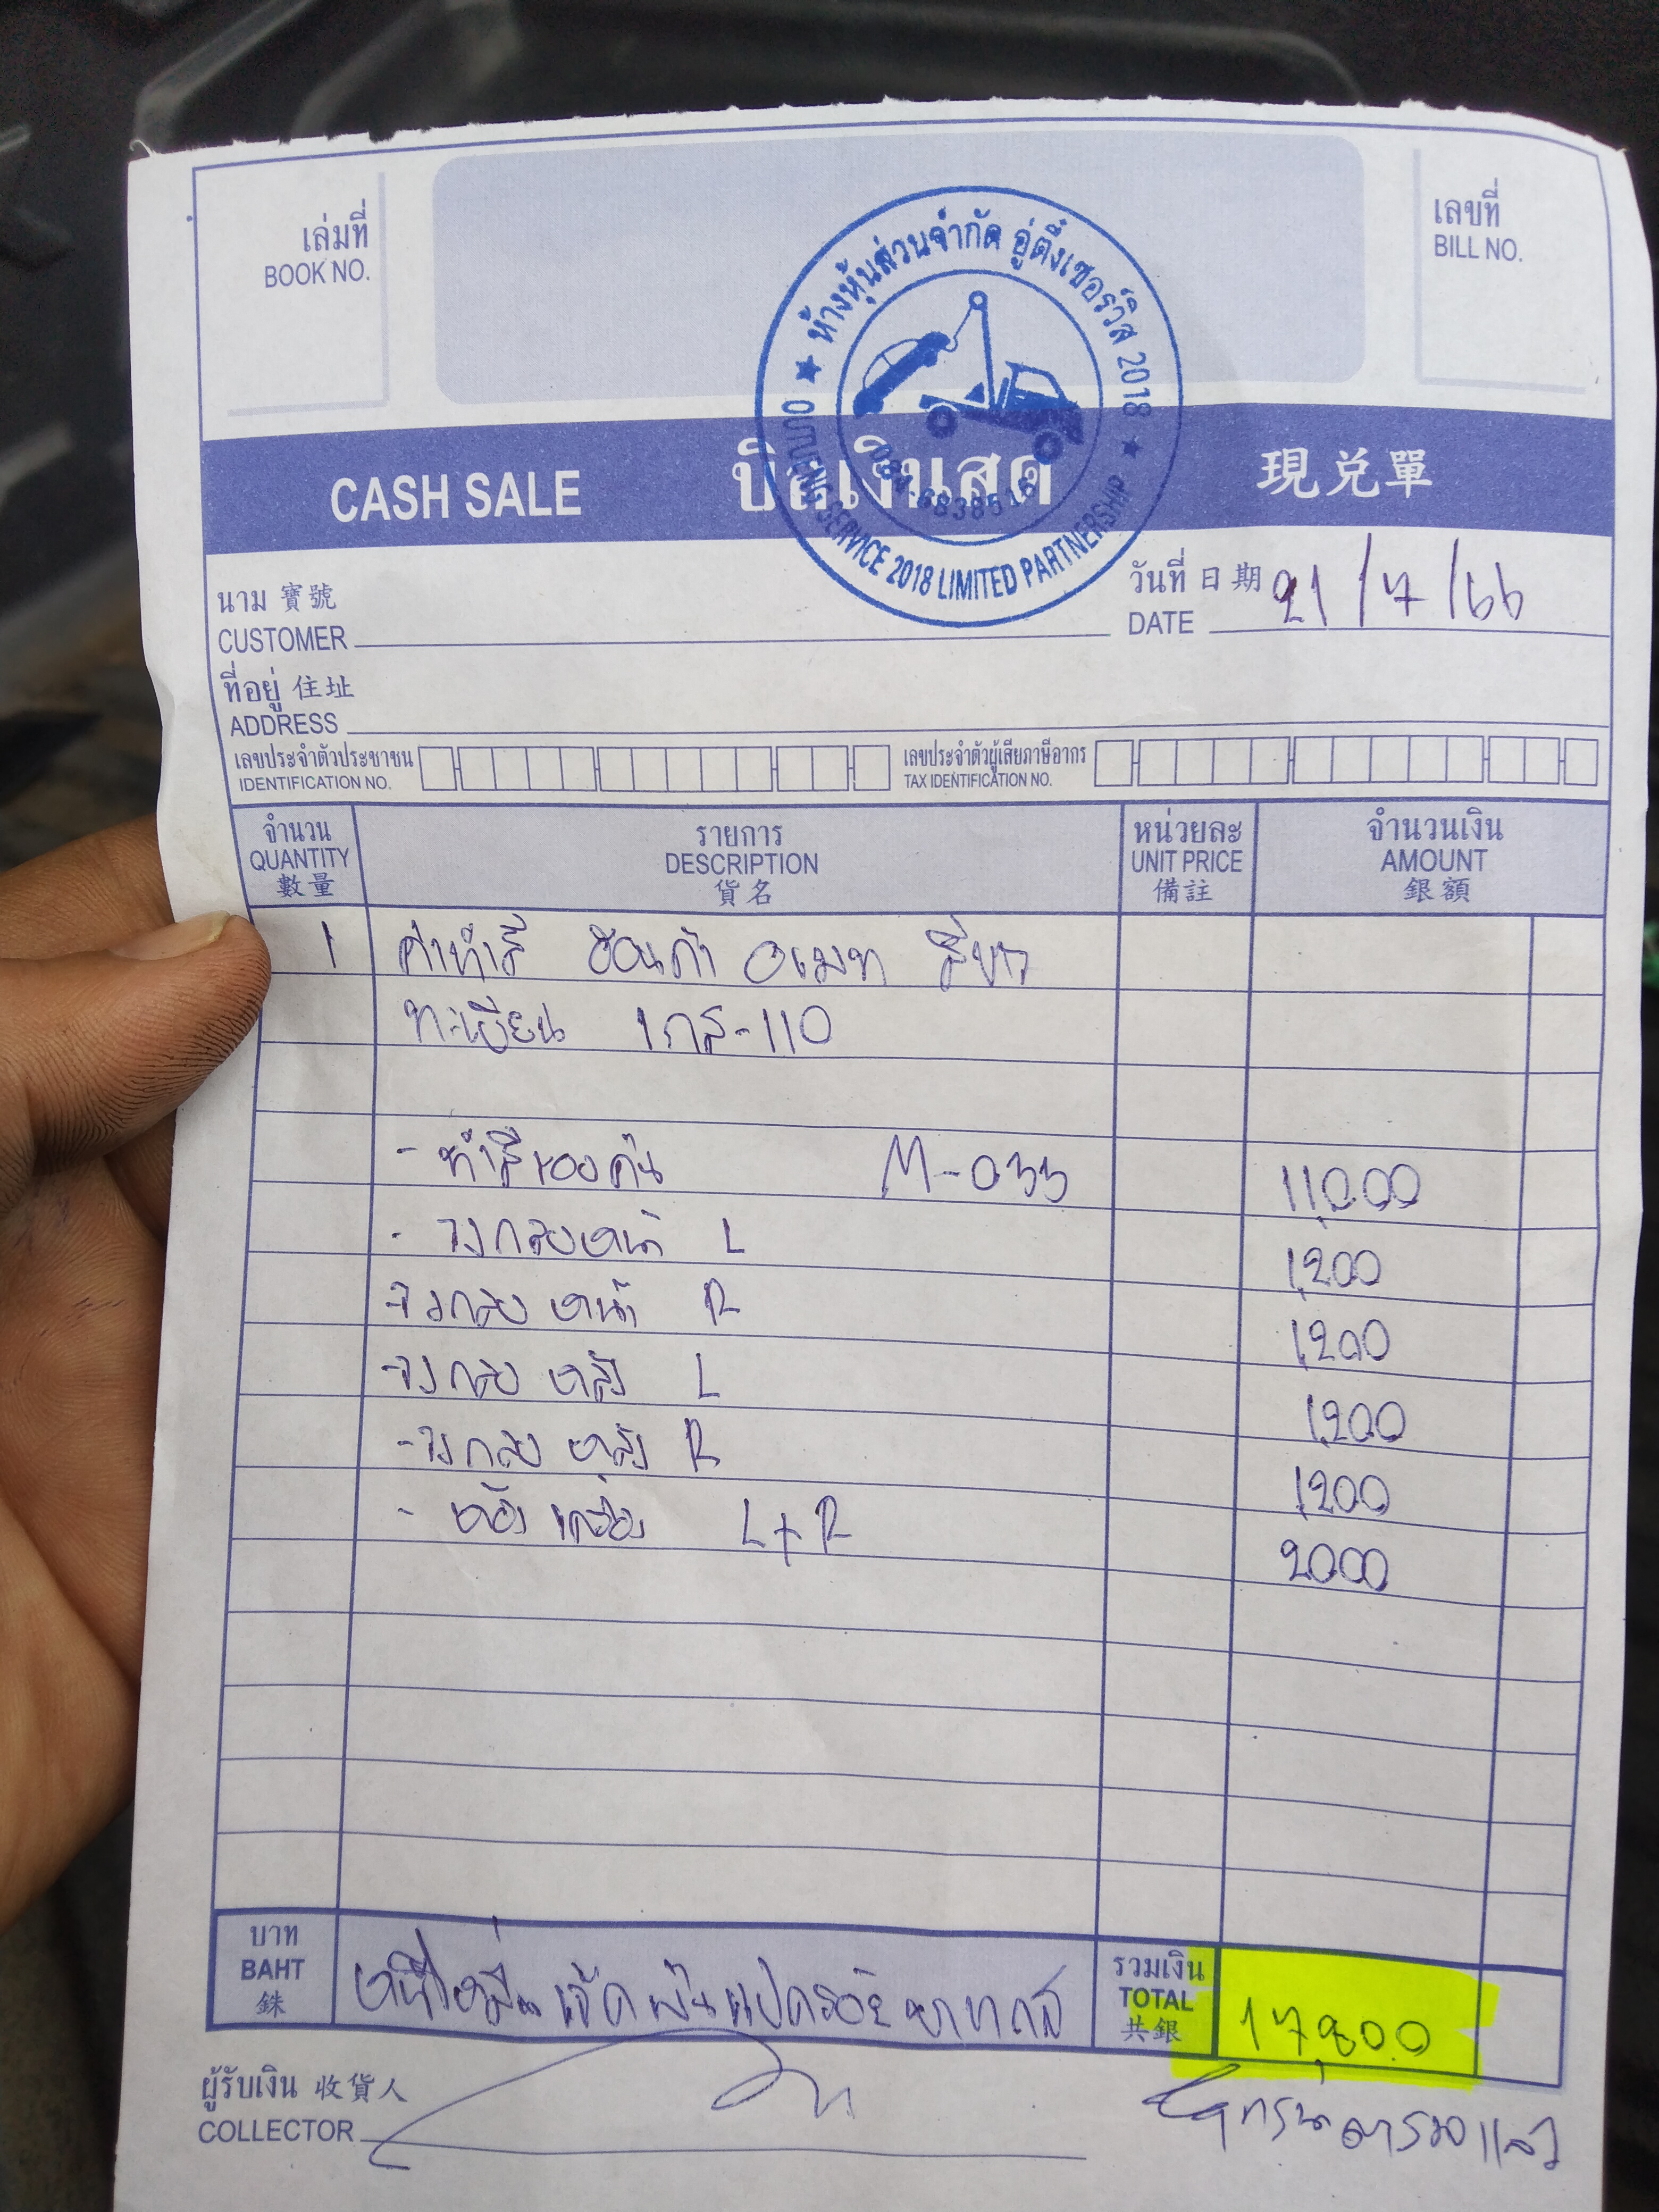 เล่มที่
BOOK NO.
เลขที่
BILL NO.
★ ห้างหุ้นส่วนจำกัด อู่ตึ๋งเซอร์วิส 2018 ★
OUTUENG SERVICE 2018 LIMITED PARTNERSHIP
CASH SALE บิลเงินสด 現兑單
นาม 寶號
CUSTOMER
วันที่ 日期 21/7/66
DATE
ที่อยู่ 住址
ADDRESS
เลขประจำตัวประชาชน
IDENTIFICATION NO.
เลขประจำตัวผู้เสียภาษีอากร
TAX IDENTIFICATION NO.
จำนวน รายการ หน่วยละ จำนวนเงิน
QUANTITY DESCRIPTION UNIT PRICE AMOUNT
數量 貨名 備註 銀額
1 ค่าทำสี ฮอนด้า อเมท สีขาว
ทะเบียน 1กส-110
- ทำสีรอบคัน M-033 11,000
- วงกลบหน้า L 1,200
- วงกลบ หน้า R 1,200
- วงกลบ หลัง L 1,200
- วงกลบ หลัง R 1,200
- ห้องเครื่อง L+R 2000
บาท
BAHT
銖
หนึ่งหมื่นเจ็ดพันแปดร้อยบาทถ้วน
รวมเงิน
TOTAL
共銀
17,800
ผู้รับเงิน 收貨人
COLLECTOR